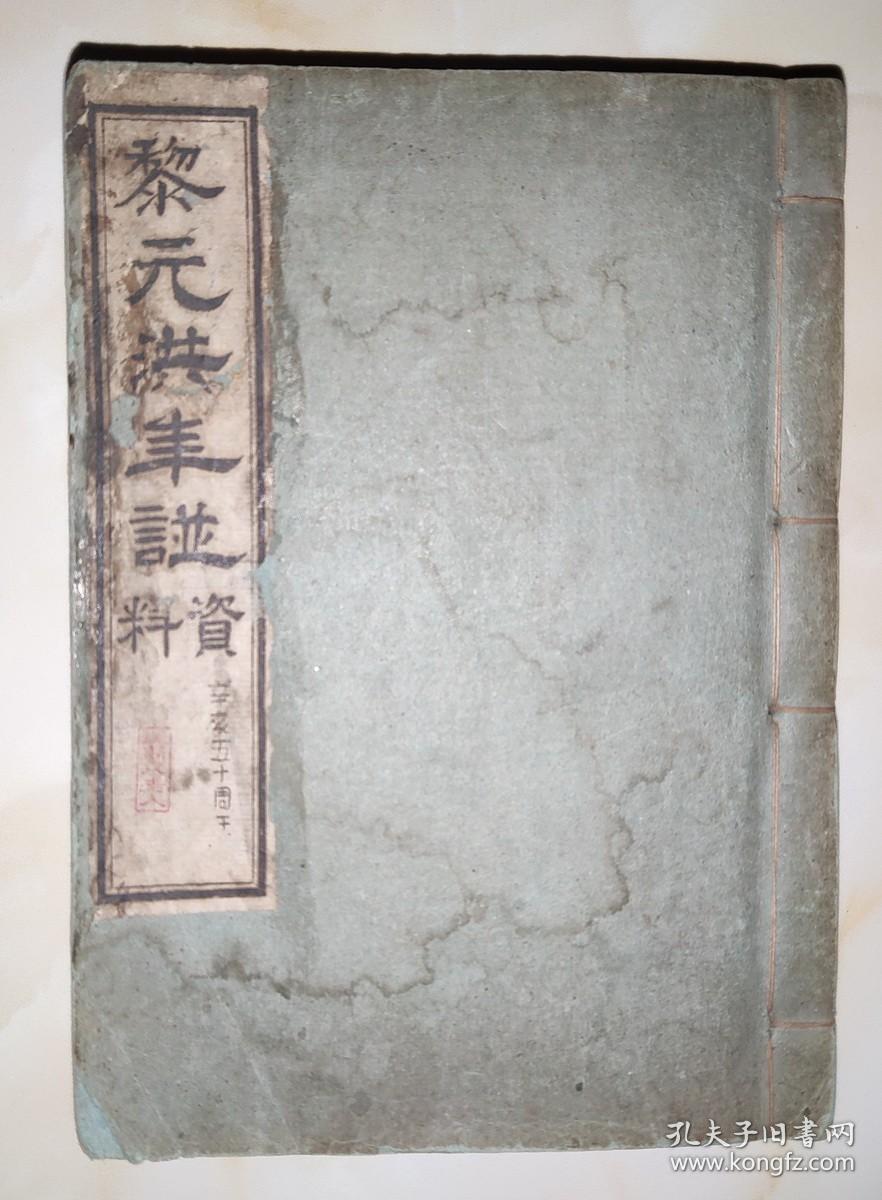 黎元洪年譜資料
辛亥五十周年
孔夫子旧書网
www.kongfz.com